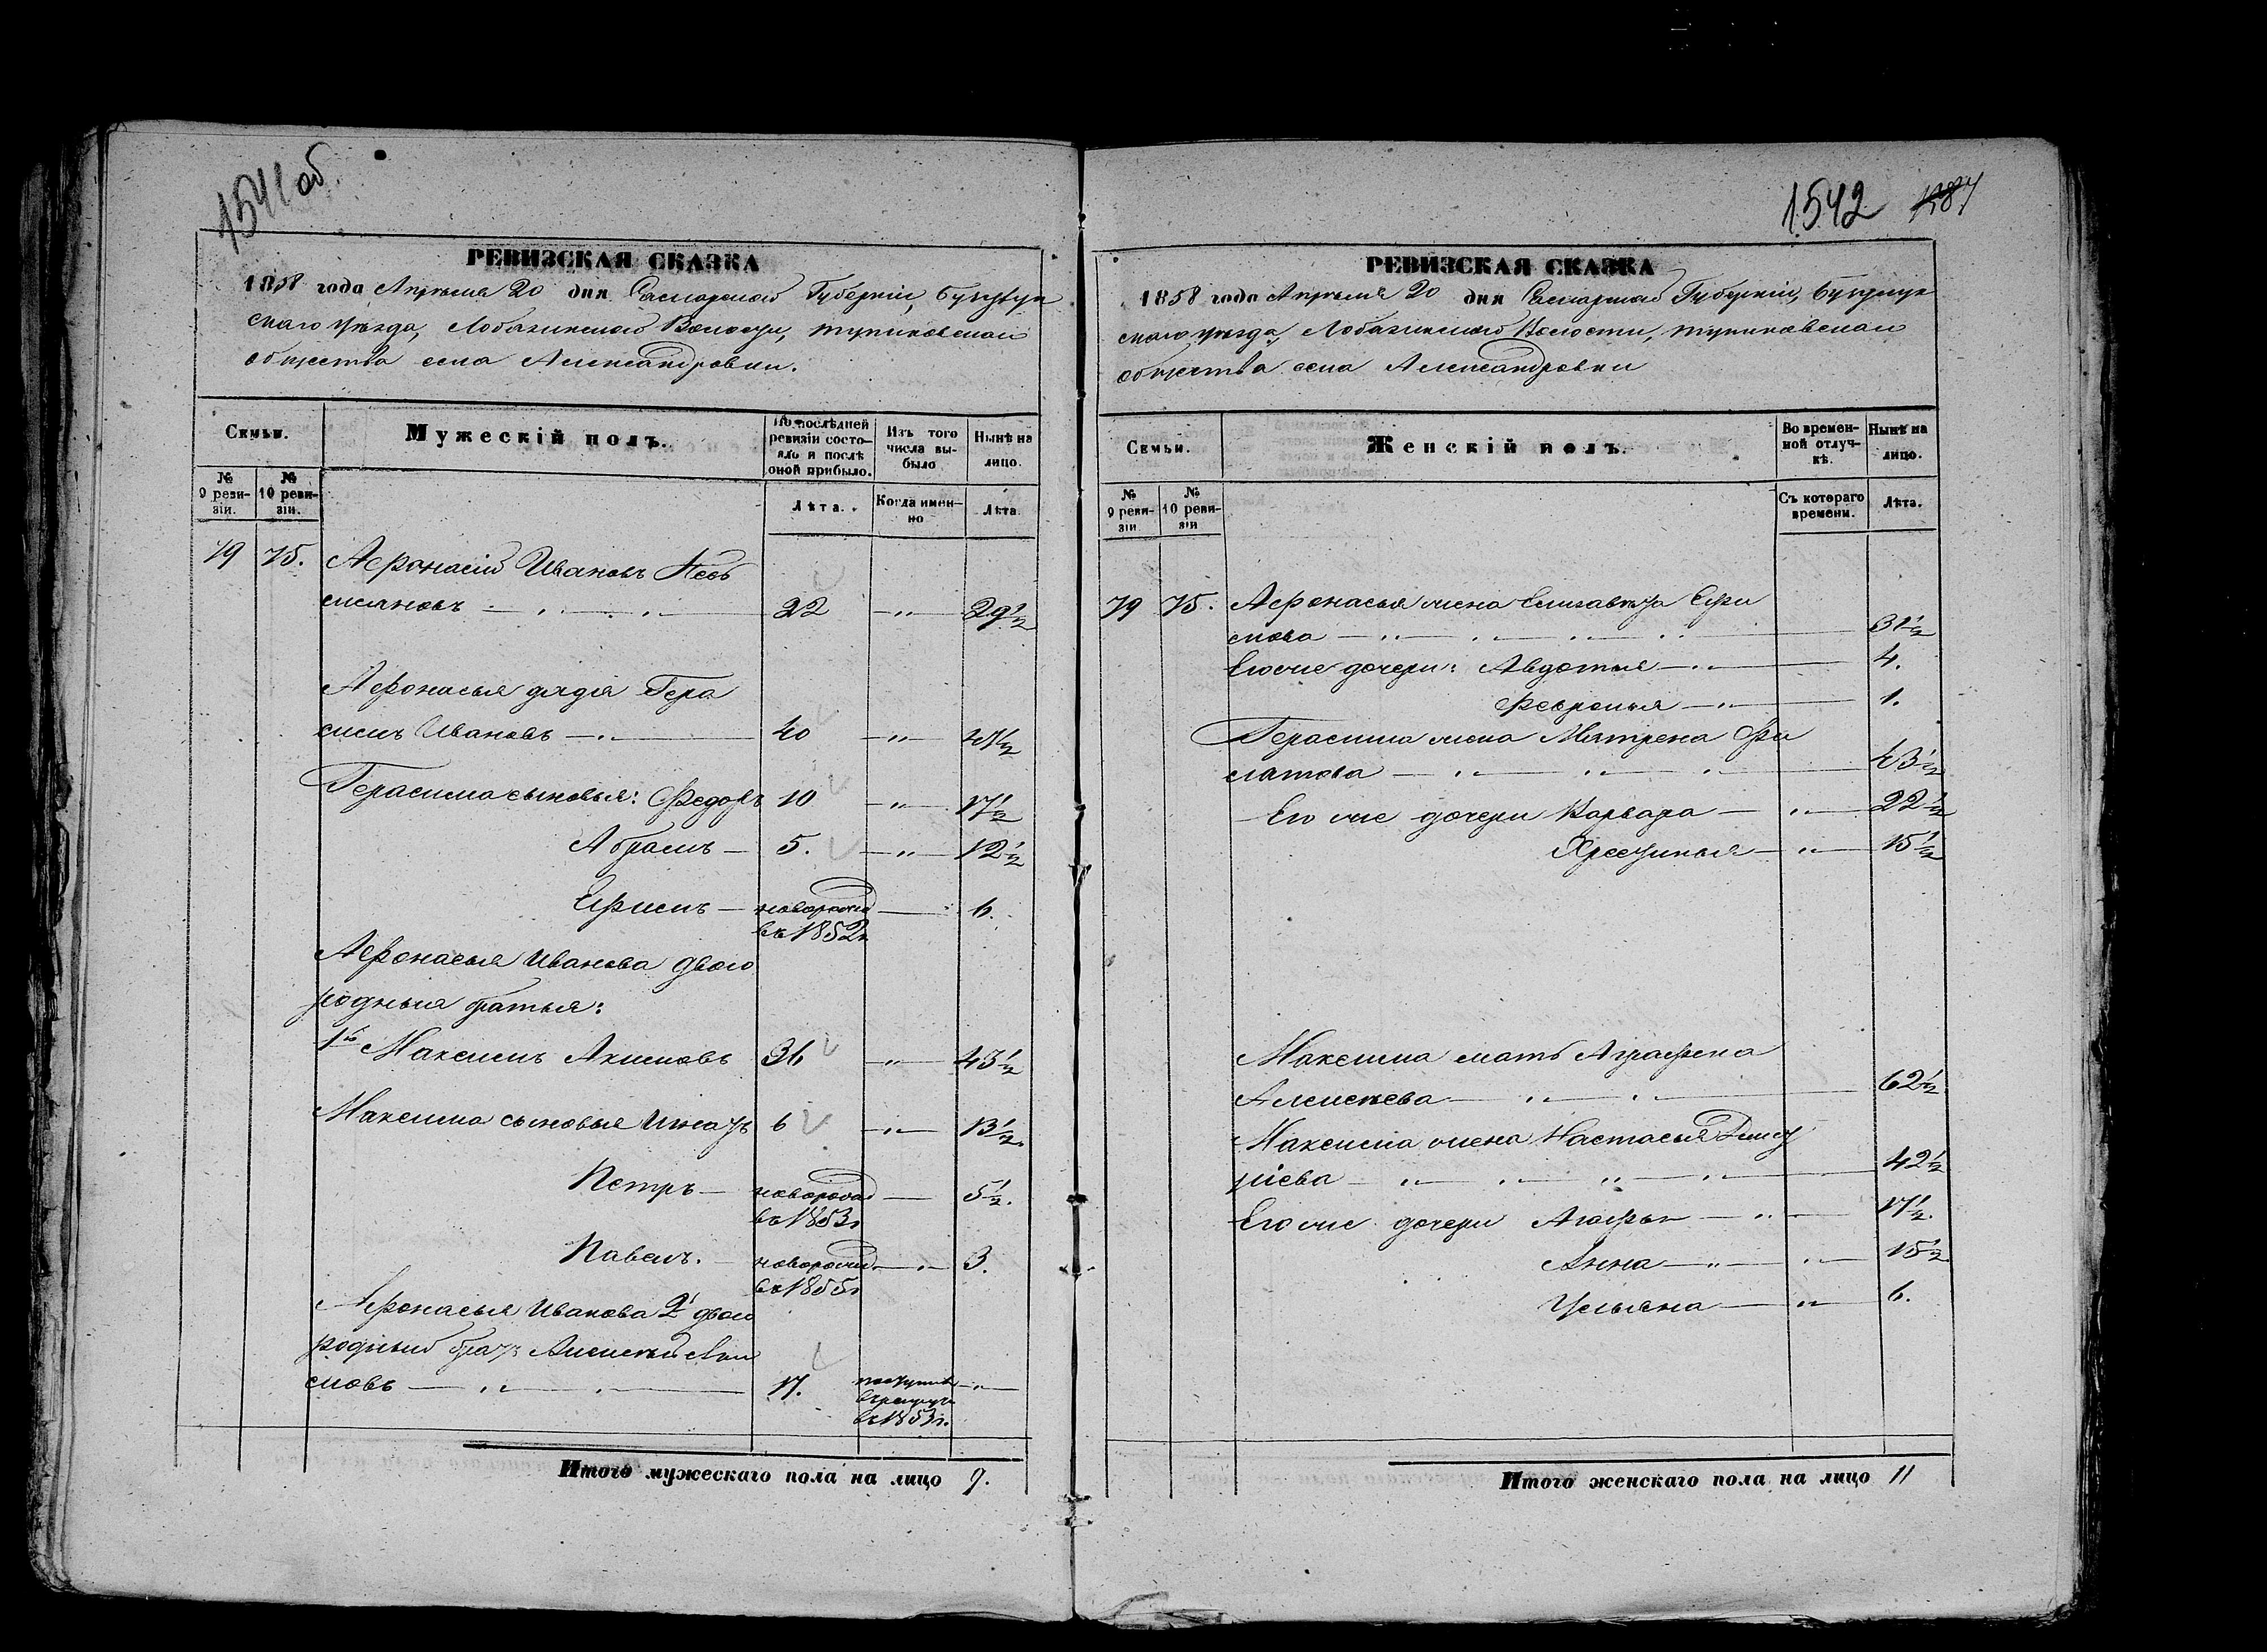 1541 об.
РЕВИЗСКАЯ СКАЗКА
1858 года Апреля 20 дня Самарской Губернии, Бугурус
скаго уезда, Лобазинской Волости,
общества села Александровки.
Семьи.
Мужескій полъ.
По последней ревизіи состо-
яло и послѣ оной прибыло.
Изъ того числа вы-
было
Нынѣ на лицо.
№ 9 реви-
зіи.
№ 10 реви-
зіи.
Лѣта.
Когда имен-
но
Лѣта.
79 75. Афонасій Ивановъ
22 — " — 29½
Афонасья дядя Гера
симъ Ивановъ — " — 40 — " — 47½
Герасима сыновья: Федоръ 10 — " — 17½
Абрамъ — 5. — " — 12½
Ефимъ — новорожд — 6.
въ 1852г
Афонасья Иванова двою
родныя братья:
1й Максимъ Акимовъ 36 — " — 43½
Максима сыновья Игнатъ 6 — " — 13½.
Петръ — новорожд — 5½.
въ 1853г
Павелъ. — новорожд — " — 3.
въ 1855г
Афонасья Иванова 2й двою
родный братъ Алексѣй Аки
мовъ — " — 17. поступилъ — " —
въ рекруты
въ 1853г.
Итого мужескаго пола на лицо 9.
1542
РЕВИЗСКАЯ СКАЗКА
1858 года Апреля 20 дня Самарской Губерніи, Бугурус
скаго уезда, Лобазинской Волости,
общества села Александровки
Семьи.
Женскій полъ.
Во времен-
ной отлуч-
кѣ.
Нынѣ на лицо.
№ 9 реви-
зіи
№ 10 реви-
зіи
Съ котораго времени.
Лѣта.
79 75. Афонасья жена Елизавета Ефи
мова — " — 31½
Его же дочери: Авдотья — " — 4.
Февронья — " — 1.
Герасима жена Матрена Фи
латова — " — 43½
Его же дочери Варвара — " — 22½
Хрестинья — " — 15½
Максима мать Аграфена
Алексѣева — " — 62½
Максима жена Настасья Дмит
ріева — " — 42½
Его же дочери Агафья — " — 17½.
Анна — " — 15½
Ульяна — " — 6.
Итого женскаго пола на лицо 11